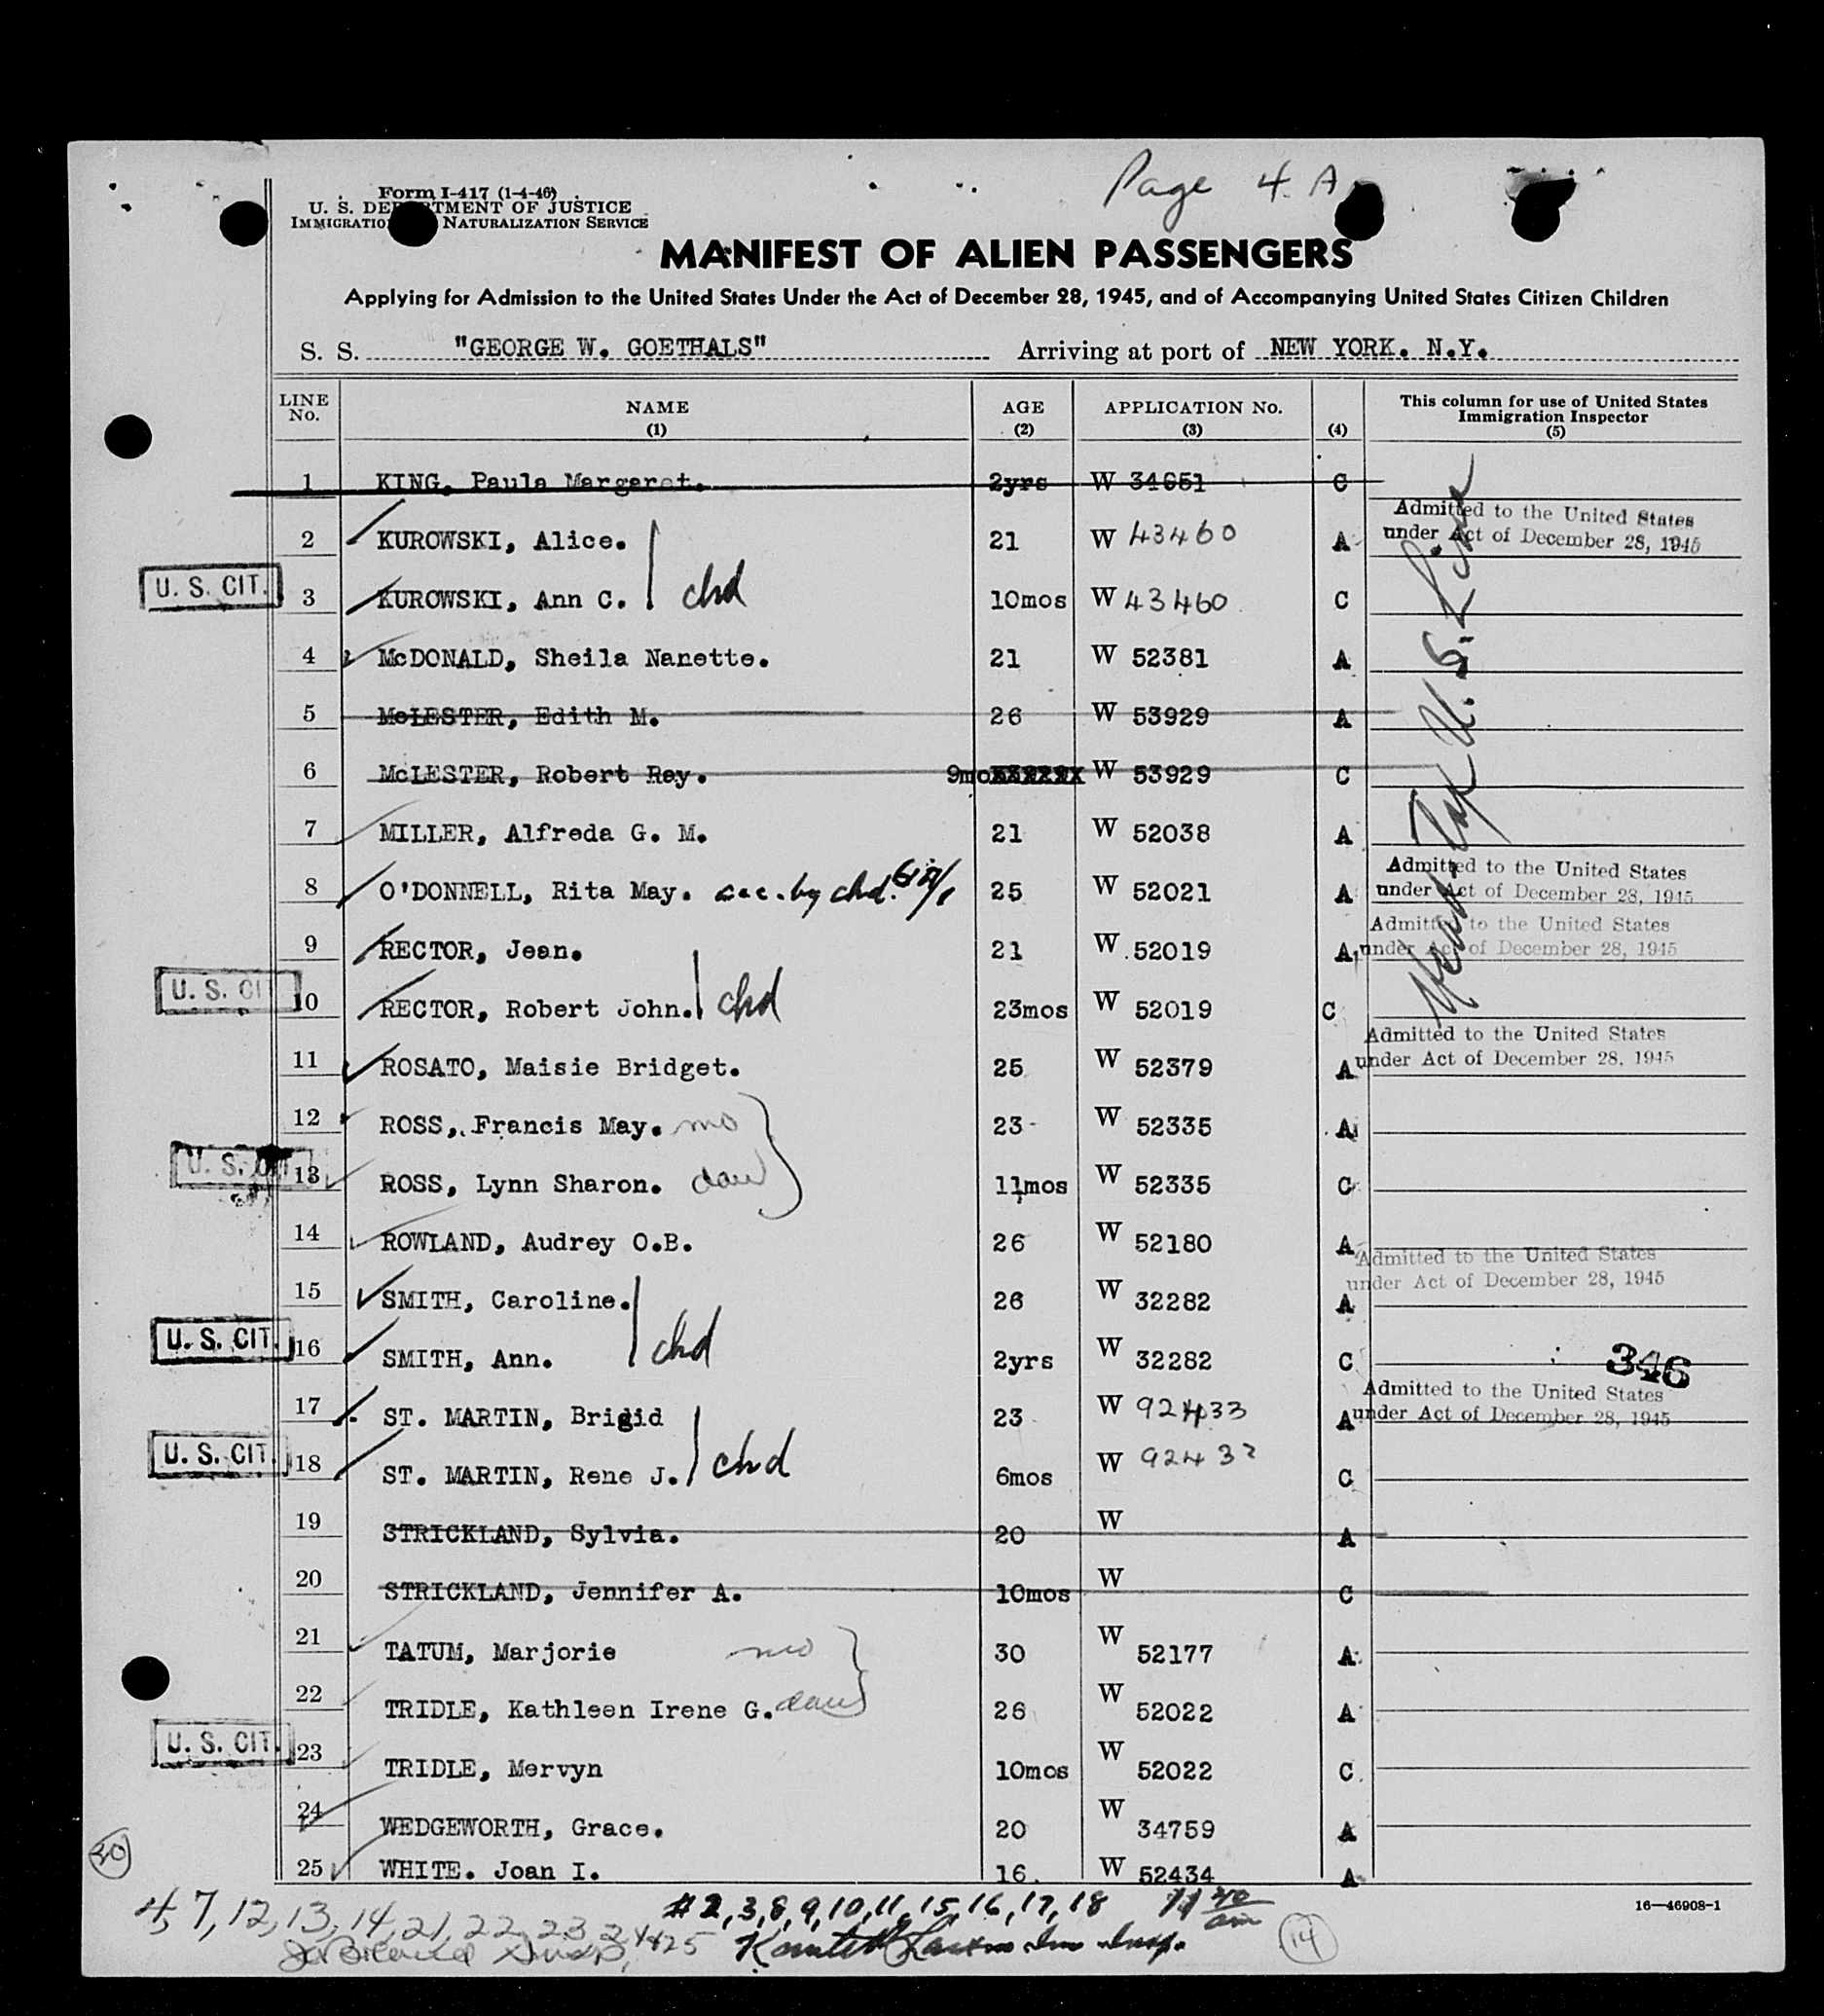 Page 4 A
Form I-417 (1-4-46)
U. S. DEPARTMENT OF JUSTICE
IMMIGRATION NATURALIZATION SERVICE
MANIFEST OF ALIEN PASSENGERS
Applying for Admission to the United States Under the Act of December 28, 1945, and of Accompanying United States Citizen Children
S. S. "GEORGE W. GOETHALS" Arriving at port of NEW YORK. N.Y.
LINE No. NAME (1) AGE (2) APPLICATION No. (3) (4) This column for use of United States Immigration Inspector (5)
1 KING, Paula Margaret. 2yrs W 34651 C
2 KUROWSKI, Alice. 21 W 43460 A Admitted to the United States under Act of December 28, 1945
U. S. CIT. 3 KUROWSKI, Ann C. chd 10mos W 43460 C
4 McDONALD, Sheila Nanette. 21 W 52381 A
5 McLESTER, Edith M. 26 W 53929 A
6 McLESTER, Robert Roy. 9mo W 53929 C
7 MILLER, Alfreda G. M. 21 W 52038 A
8 O'DONNELL, Rita May. acc. by chd. 25 W 52021 A Admitted to the United States under Act of December 28, 1945
9 RECTOR, Jean. 21 W 52019 A Admitted to the United States under Act of December 28, 1945
U. S. CI 10 RECTOR, Robert John. chd 23mos W 52019 C
11 ROSATO, Maisie Bridget. 25 W 52379 A Admitted to the United States under Act of December 28, 1945
12 ROSS, Francis May. mo 23 W 52335 A
U. S. CIT. 13 ROSS, Lynn Sharon. dau 11mos W 52335 C
14 ROWLAND, Audrey O.B. 26 W 52180 A
15 SMITH, Caroline. 26 W 32282 A Admitted to the United States under Act of December 28, 1945
U. S. CIT. 16 SMITH, Ann. chd 2yrs W 32282 C 346
17 ST. MARTIN, Brigid 23 W 92433 A Admitted to the United States under Act of December 28, 1945
U. S. CIT. 18 ST. MARTIN, Rene J. chd 6mos W 92433 C
19 STRICKLAND, Sylvia. 20 W A
20 STRICKLAND, Jennifer A. 10mos W C
21 TATUM, Marjorie mo 30 W 52177 A
22 TRIDLE, Kathleen Irene G. dau 26 W 52022 A
U. S. CIT. 23 TRIDLE, Mervyn 10mos W 52022 C
24 WEDGEWORTH, Grace. 20 W 34759 A
25 WHITE. Joan I. 16 W 52434 A
30
4, 7, 12, 13, 14, 21, 22, 23, 24 & 25
#2, 3, 8, 9, 10, 11, 15, 16, 17, 18 11 40 am
Imm. Insp.
14
16—46908-1